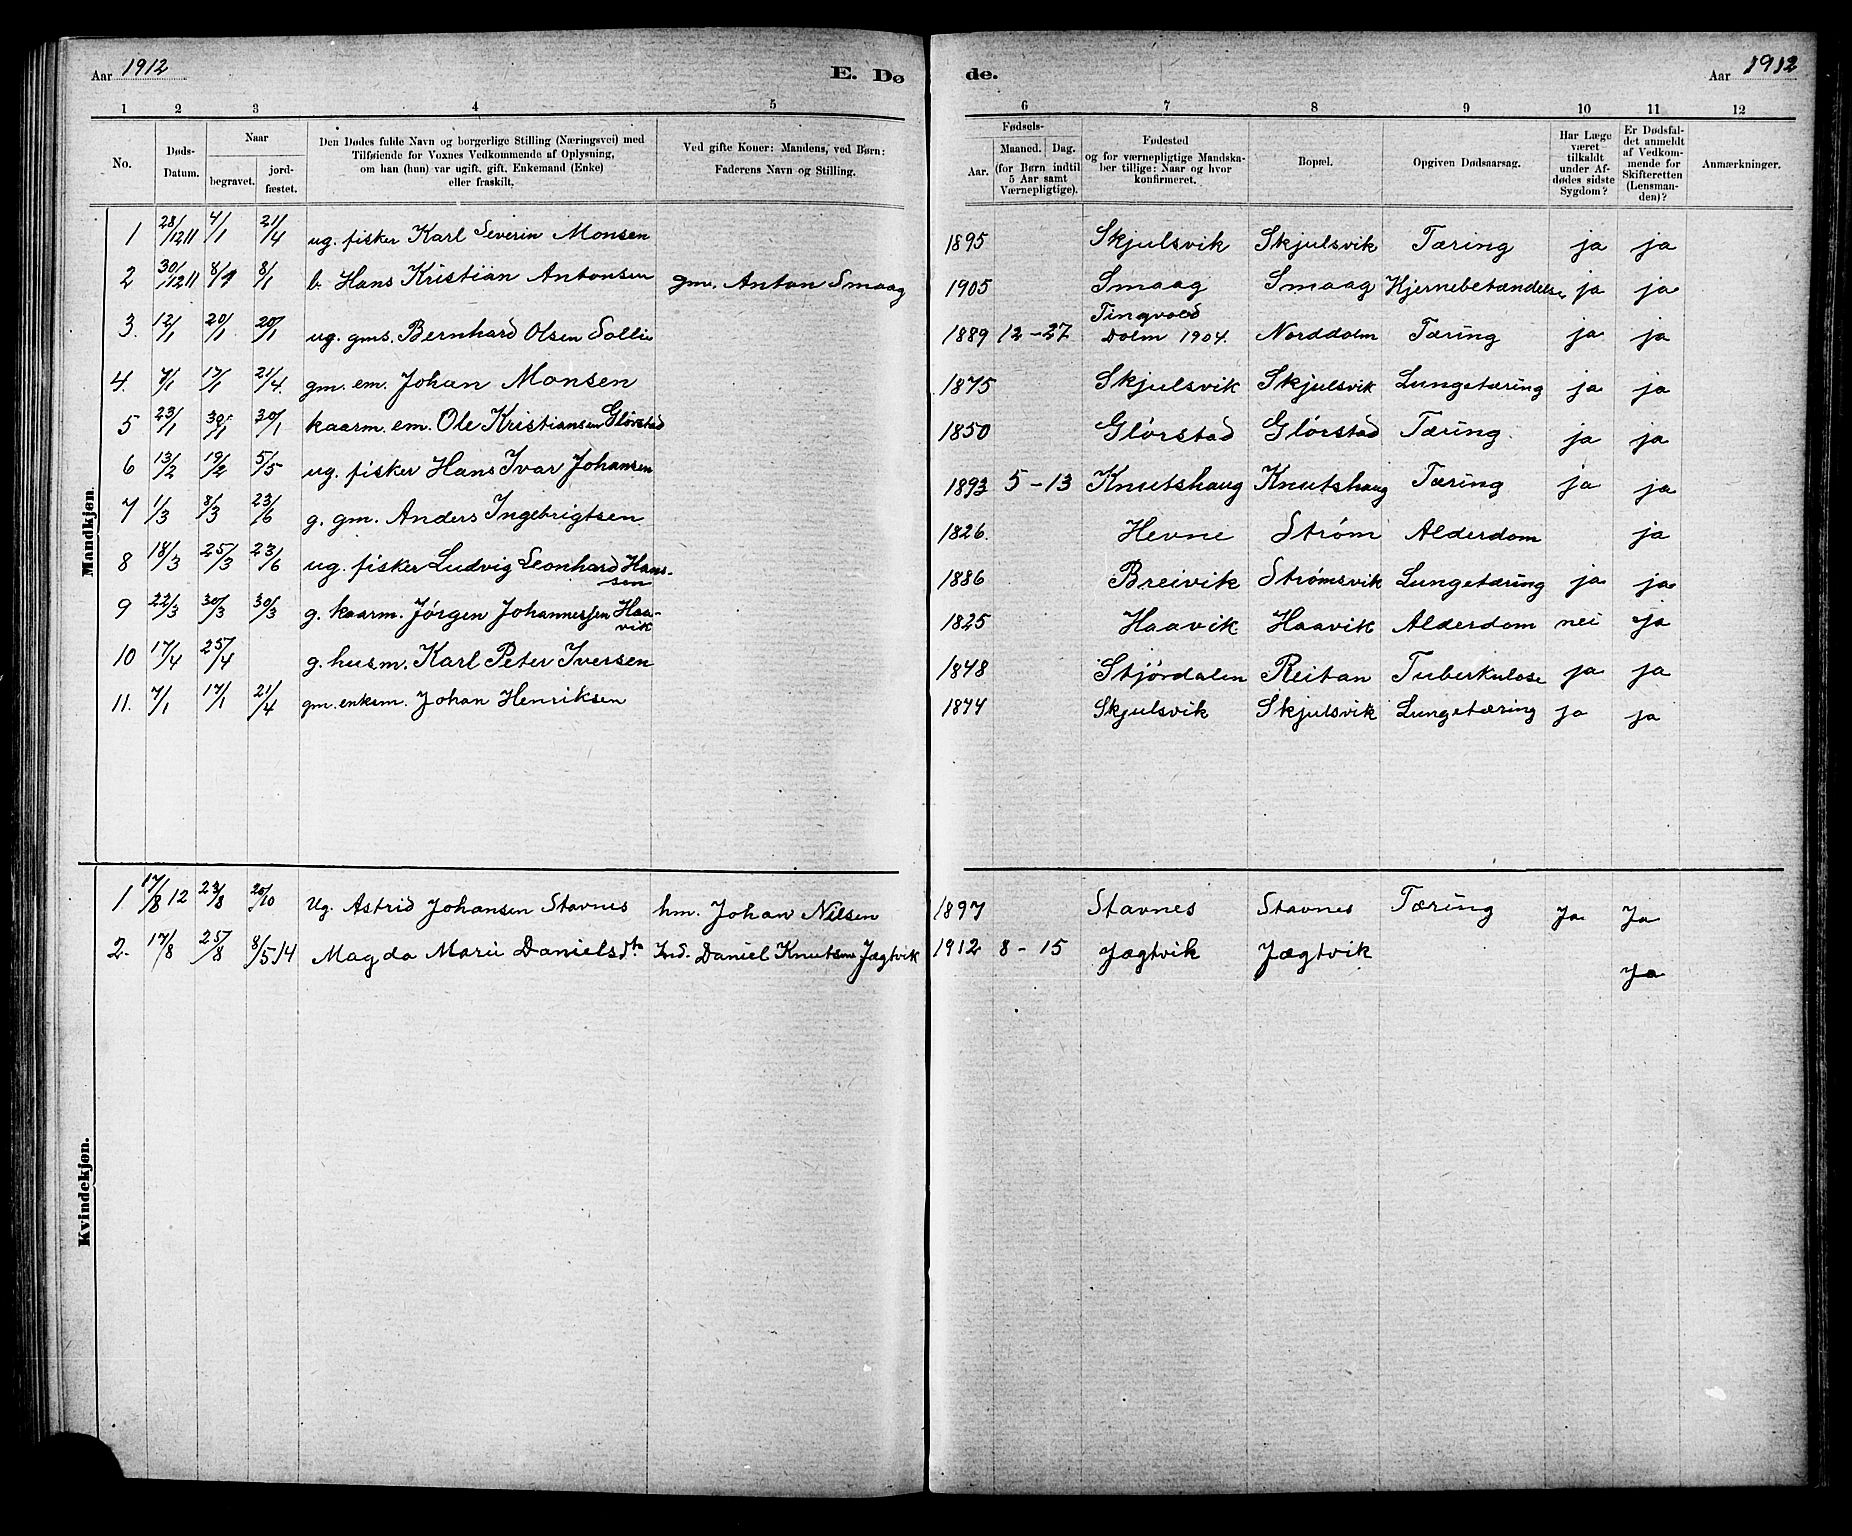 Aar 1912 E. Døde. Aar 1912
1 2 3 4 5 6 7 8 9 10 11 12
No. Døds-Datum. Naar begravet. jordfæstet. Den Dødes fulde Navn og borgerlige Stilling (Næringsvei) med Tilføiende for Voxnes Vedkommende af Oplysning, om han (hun) var ugift, gift, Enkemand (Enke) eller fraskilt. Ved gifte Koner: Mandens, ved Børn: Faderens Navn og Stilling. Fødsels- Aar. Maaned. Dag. (for Børn indtil 5 Aar samt Værnepligtige). Fødested og for værnepligtige Mandskaber tillige: Naar og hvor konfirmeret. Bopæl. Opgiven Dødsaarsag. Har Læge været tilkaldt under Afdødes sidste Sygdom? Er Dødsfaldet anmeldt af Vedkommende for Skifteretten (Lensmanden)? Anmærkninger.
Mandkjøn.
1 28/12 11 4/1 21/4 ug. fisker Karl Severin Monsen 1895 Skjulsvik Skjulsvik Tæring ja ja
2 30/12 11 8/1 8/1 b. Hans Kristian Antonsen gm. Anton Smaag 1905 Smaag Smaag Hjernebetændelse ja ja
3. 12/1 20/1 20/1 ug. gms. Bernhard Olsen Sollie 1889 12-27 Tingvold Dolm 1904. Norddolm Tæring ja ja
4. 7/1 17/1 21/4. gm. em. Johan Monsen 1875 Skjulsvik Skjulsvik Lungetæring ja ja
5 23/1 30/1 30/1 kaarm. em. Ole Kristiansen Glørstad 1850 Glørstad Glørstad Tæring. ja ja
6 13/2 19/2 5/5 ug. fisker Hans Ivar Johansen 1893 5-13 Knutshaug Knutshaug Tæring ja ja
7 1/3 8/3 23/6 g. gm. Anders Ingebrigtsen 1826. Hevne Strøm Alderdom ja
8 18/3 25/3 23/6 ug. fisker Ludvig Leonhard Hanssen 1886 Breivik Strømsvik Lungetæring ja ja
9 22/3 30/3 30/3 g. kaarm. Jørgen Johannessen Haavik 1825 Haavik Haavik Alderdom nei ja
10 17/4 25/4 g. husm. Karl Peter Iversen 1848 Stjørdalen Reitan Tuberkulose ja ja
11. 7/1 17/1 21/4 gm. enkem. Johan Henriksen 1874 Skjulsvik Skjulsvik Lungetæring ja ja
Kvindekjøn.
1 17/8 12 23/8 20/10 Ug. Astrid Johansen Stavnes hm. Johan Nilsen 1897 Stavnes Stavnes Tæring Ja Ja
2. 17/8 25/8 8/5 14 Magda Marie Danielsdtr Ind. Daniel Knutsen Jægtvik 1912 8-15 Jægtvik Jægtvik Ja